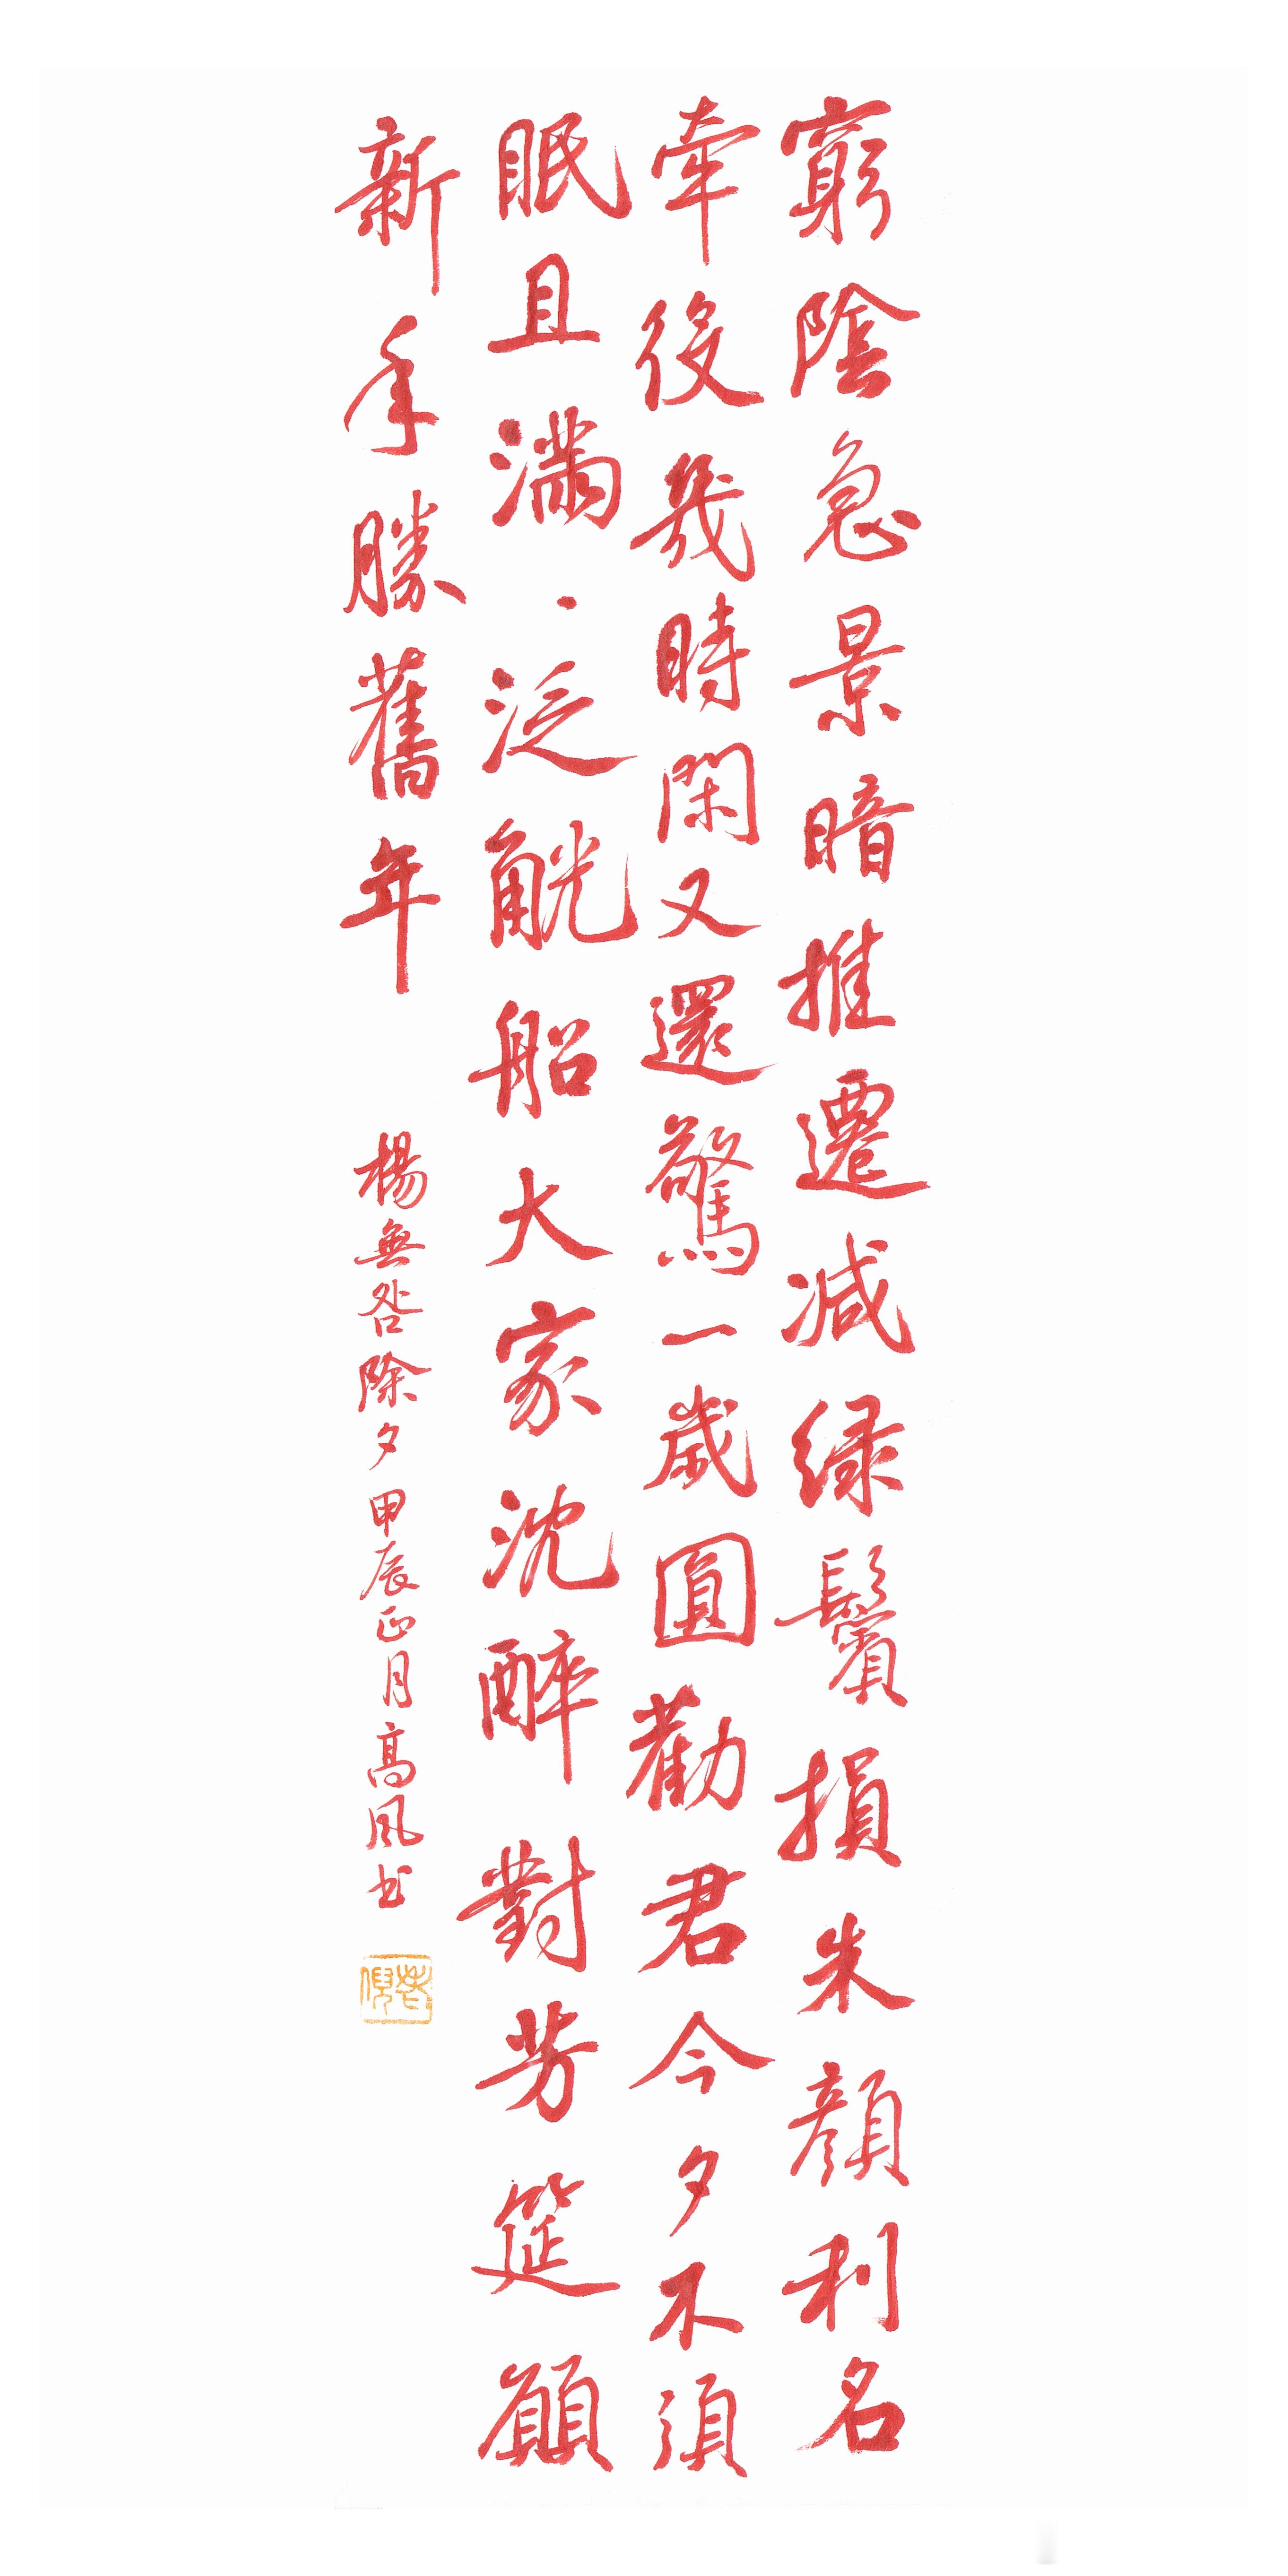 窮陰急景暗推遷減緑鬢損朱顏利名
牽役幾時閑又還驚一歲圓勸君今夕不須
眠且滿〻泛觥船大家沈醉對芳筵願
新年勝舊年
楊無咎除夕甲辰正月高風书